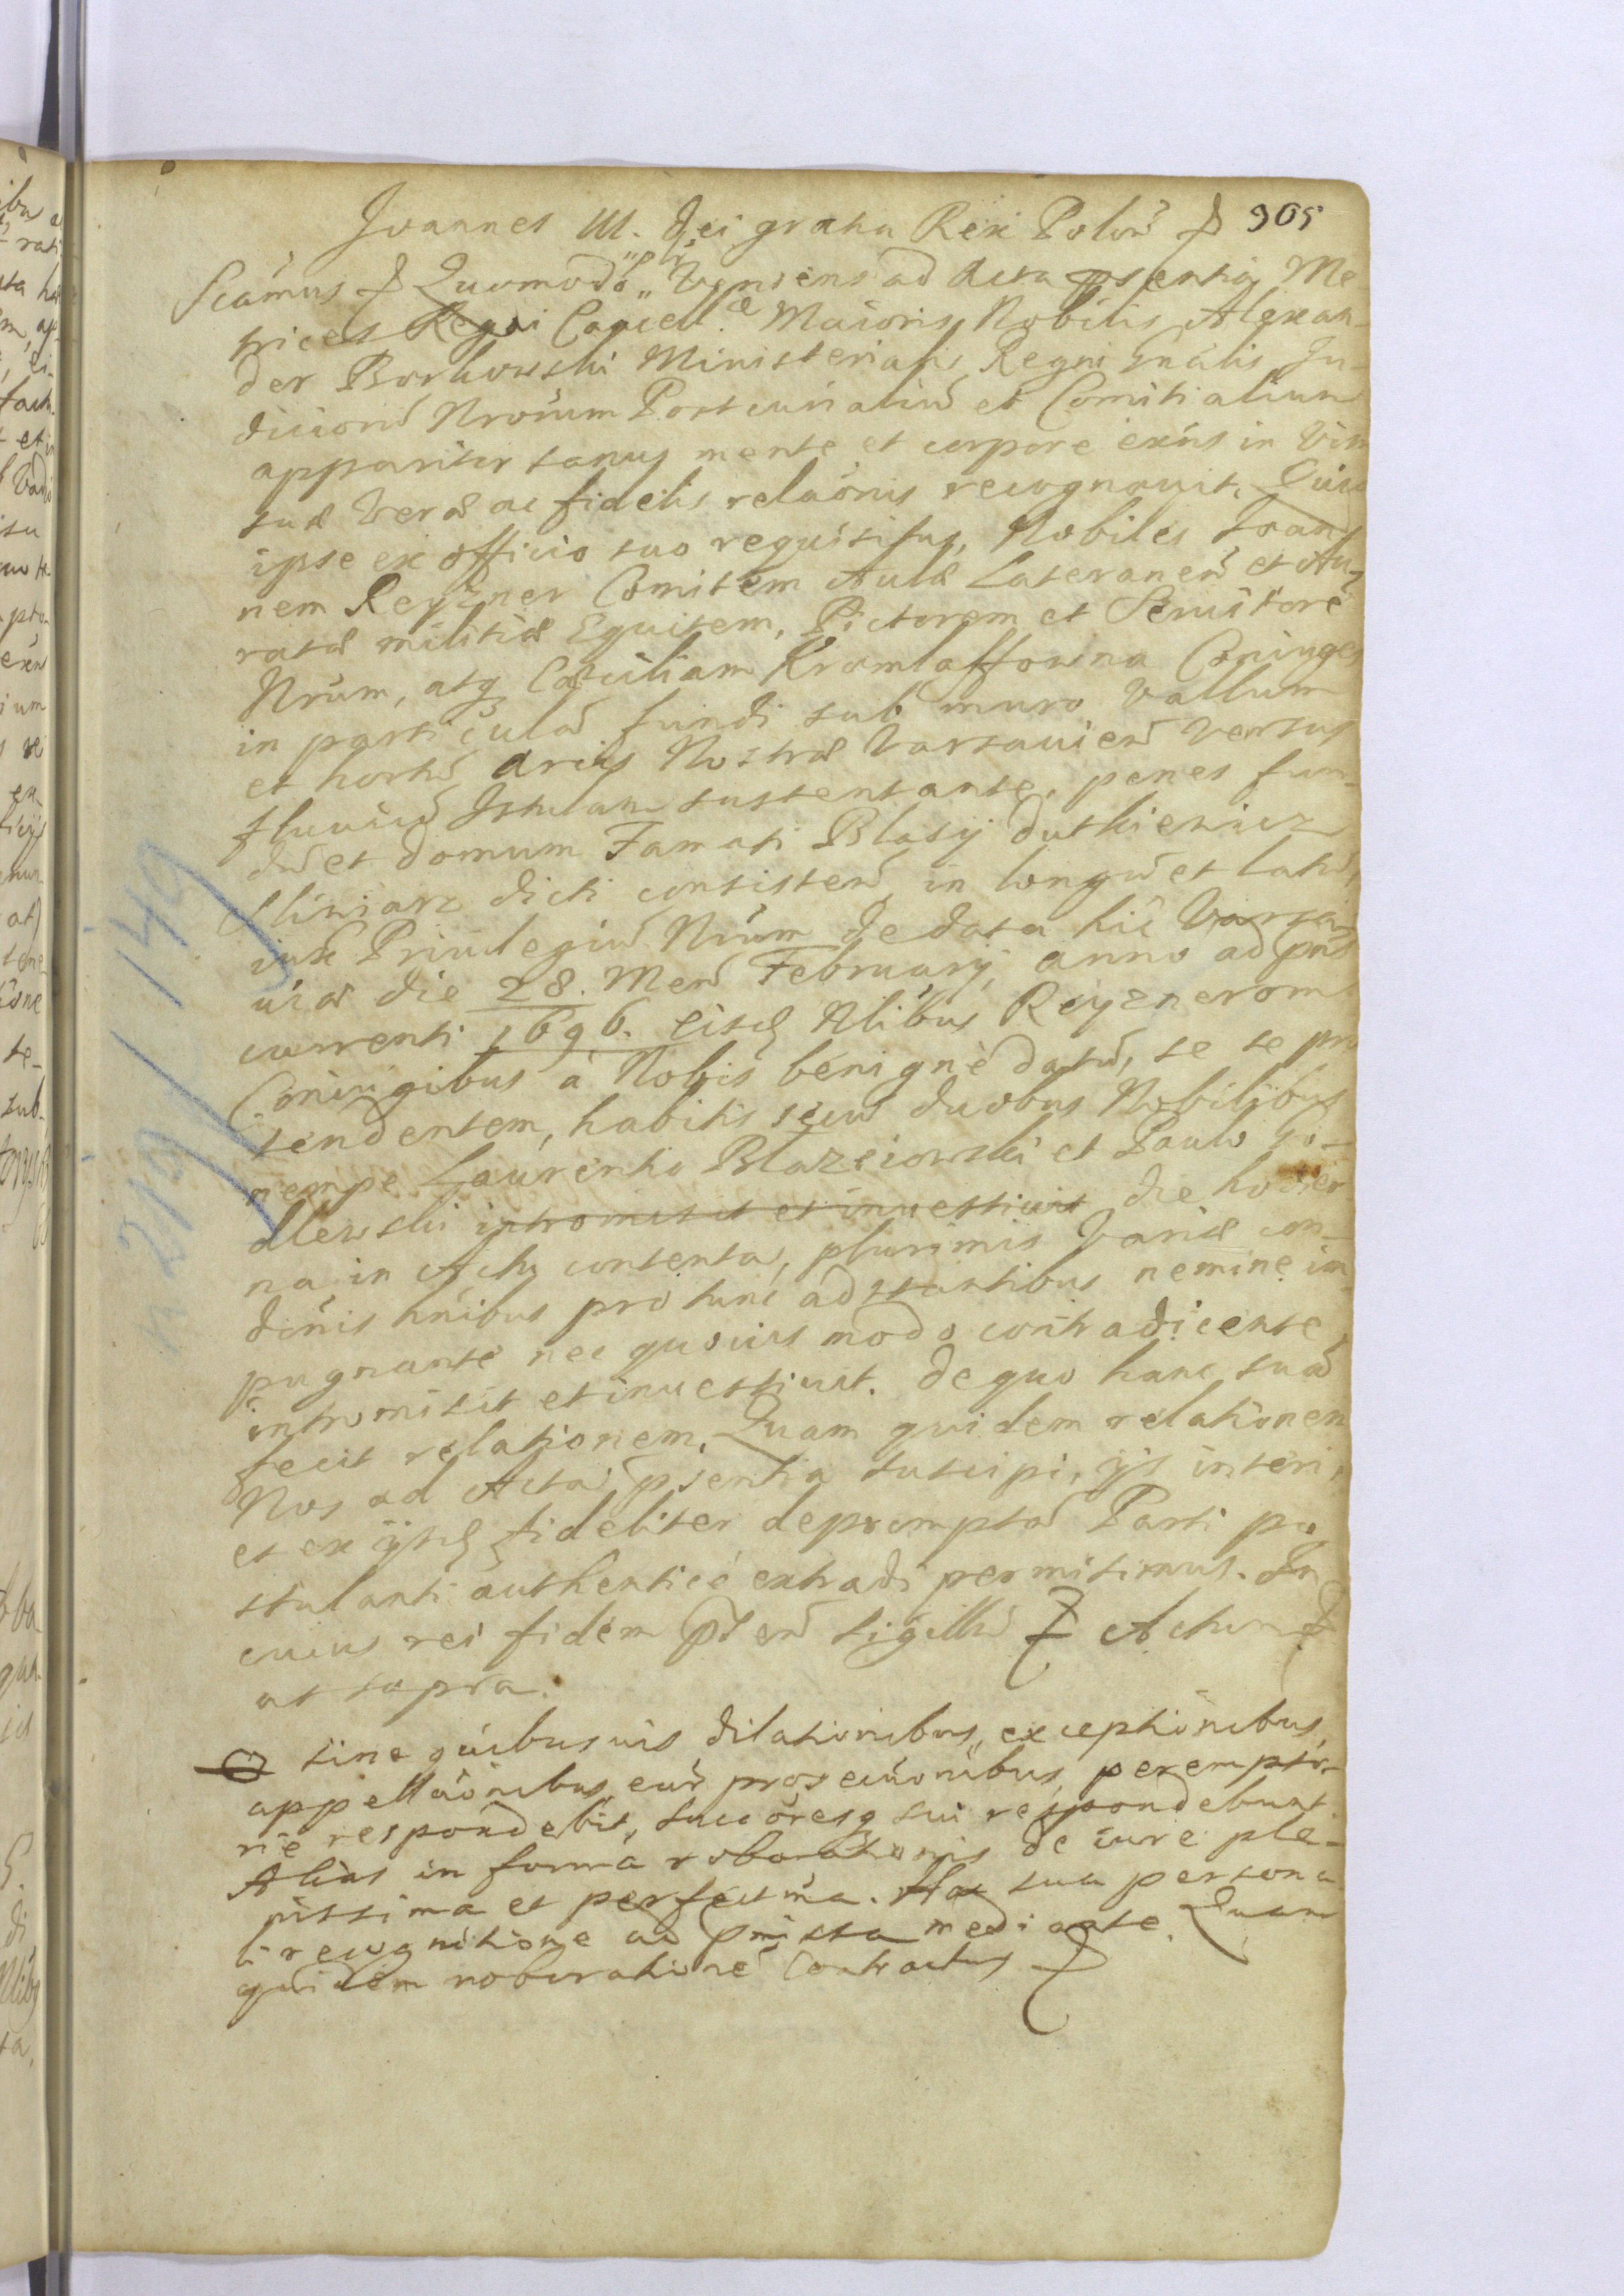 Joannes III. Dei gratia Rex Polon̄ 905
Scamus Quomodo „ Veniens ad Acta psentia Me-
trices Regni Cancell. Maioris Nobilis Alexan-
der Borkowski Ministerialis Regni Gnalis Ju-
diciorū Nrorum Postcurialiū et Comitialium
apparitor sanus mente et corpore exñs in vim
suæ veræ ac fidelis relaõnis recognouit. Quia
ipse ex officio suo requisitus, Nobiles Joan-
nem Reyzner Comitem Aulæ Lateranen̄ et Au-
ratæ militiæ Equitem, Pictorem et Seruitorē
Nrum, atq Cæciliam Kromlaffowna Coniuges
in particulā fundi sub muro vallum
et hortū Arcis Nostræ Varsauien̄ versus
fluuiū Istulam sustentante, penes fun-
dū et domum Famati Blasij Dutkiewicz
Sliwiarz dicti consisten̄, in longū et latū,
iux Priuilegiū Nrum de data hic Varsa-
uiæ die 28. Men̄ February, anno ad pns
currenti 1696. eisd Nlibus Reyznerom
Coniugibus à Nobis benignè datū, se se pro
tendentem, habitis secū duobus Nobilibus
nempe Laurentio Błazeiowski et Paulo Go-
dlewski intromisit et inuestiuit die hodier
na in Actis contenta, plurimis variæ con-
dinis hnibus pro tunc adstantibus nemine im
pugnante nec quouis modo contradicente
intromisit et inuestiuit. De quo hanc suā
fecit relationem. Quam quidem relationem
Nos ad Acta psentia suscipi, ijs inseri,
et ex ijsd fideliter depromptā Parti po
stulanti authenticè extradi permisimus. In
cuius rei fidem pten̄ sigillū Actum
ut supra.
sine quibusuis dilationibus, exceptionibus,
appellaõnibus, earū prosecuõnibus, perempto-
riè respondebit, succõresq sui respondebunt.
Alias in forma roborationis de iure ple-
nissima et perfectma. Hac sua persona
li recognitione ad pmissa mediante. Quam
quidem roborationē Contractus
n 219/149